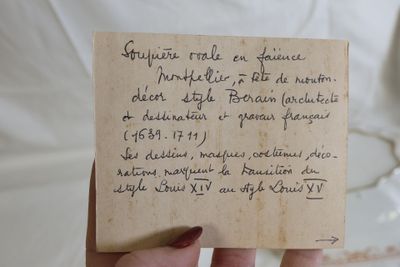 Soupière ovale en faïence
Montpellier, à tête de mouton.
décor style Berain (architecte
et dessinateur et graveur français
(1639-1711)
Ses dessins, masques, costumes, déco-
rations, marquent la transition du
style Louis XIV au style Louis XV